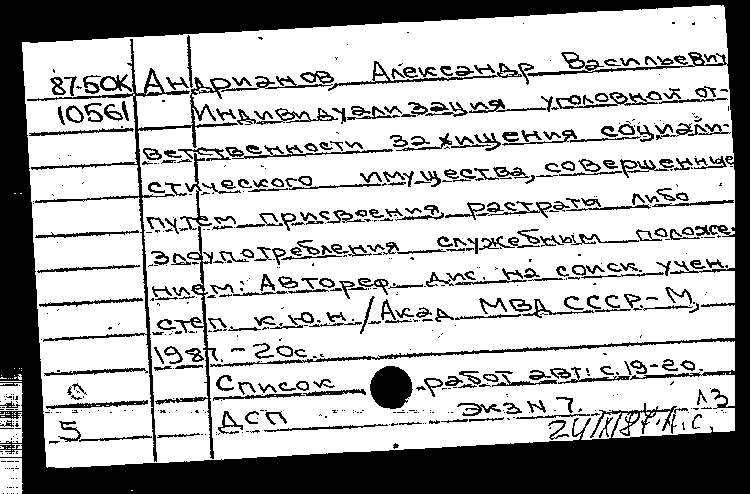 87-5ОК Андрианов, Александр Васильевич
10561 Индивидуализация уголовной от-
ветственности за хищения социали-
стического имущества, совершенные
путем присвоения, растраты либо
злоупотребления служебным положе-
нием: Автореф. дис. на соиск. учен.
степ. к.ю.н. / Акад МВД СССР.- М,
1987. - 20с.
Список работ авт: с. 19-20.
5 ДСП экз N 7. 13
24/IX/87. А.С.